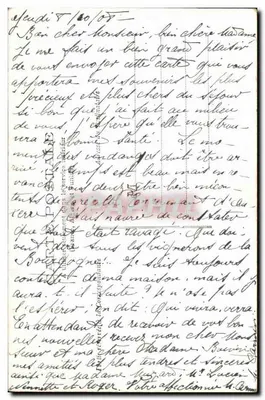 Jeudi 8/10/08
Bien cher Monsieur, bien chère Madame
Je me fais un bien grand plaisir
de vous envoyer cette carte qui vous
apportera mes souvenirs les plus
précieux et plus chers du séjour
si bon que j'ai fait au milieu
de vous, j'espère qu'elle vous trou-
vera bonne santé. Le mo-
ment des vendanges doit être ar-
rivé temps est beau mais en re-
vanche vous devez être bien mécon-
tents
suis navrée de constater
que tout était ravagé. Que doi-
vent dire tous les vignerons de la
Bourgogne! Je suis toujours
contente de ma maison, mais il y
aura-t-il une suite? je n'ose pas
l'espérer, on dit: Qui vivra, verra.
En attendant de recevoir de vos bon-
nes nouvelles recevez mon cher Mon-
sieur et ma chère Madame
mes amitiés les plus et sincères
ainsi que Madame Mr Lucien
et Roger. Votre affectionnée